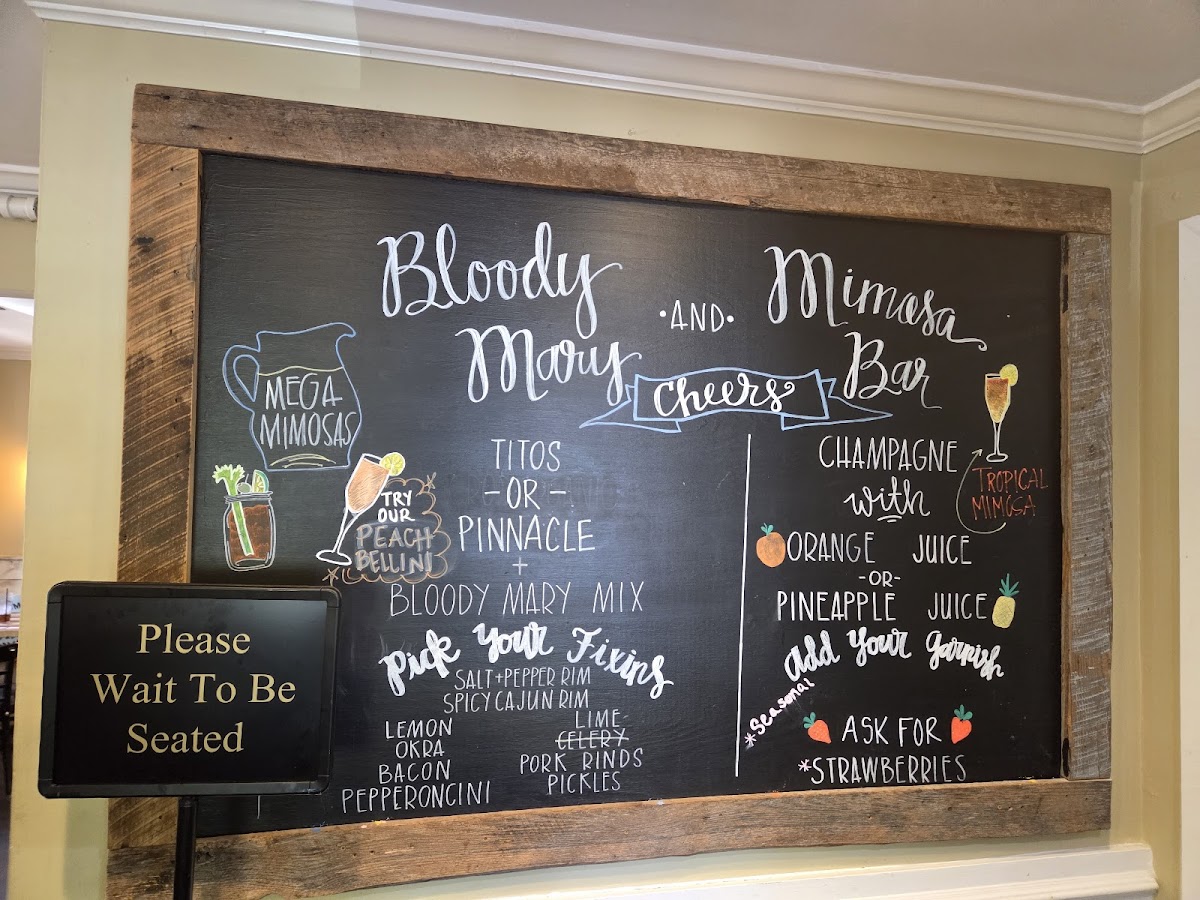 Bloody Mary
•AND•
Mimosa Bar
Cheers
MEGA
MIMOSAS
TRY
OUR
PEACH
BELLINI
TITOS
-OR-
PINNACLE
+
BLOODY MARY MIX
Pick Your Fixins
SALT+PEPPER RIM
SPICY CAJUN RIM
LEMON
OKRA
BACON
PEPPERONCINI
LIME
CELERY
PORK RINDS
PICKLES
CHAMPAGNE
with
TROPICAL
MIMOSA
ORANGE JUICE
-OR-
PINEAPPLE JUICE
Add Your Garnish
*Seasonal
ASK FOR
*STRAWBERRIES
Please
Wait To Be
Seated